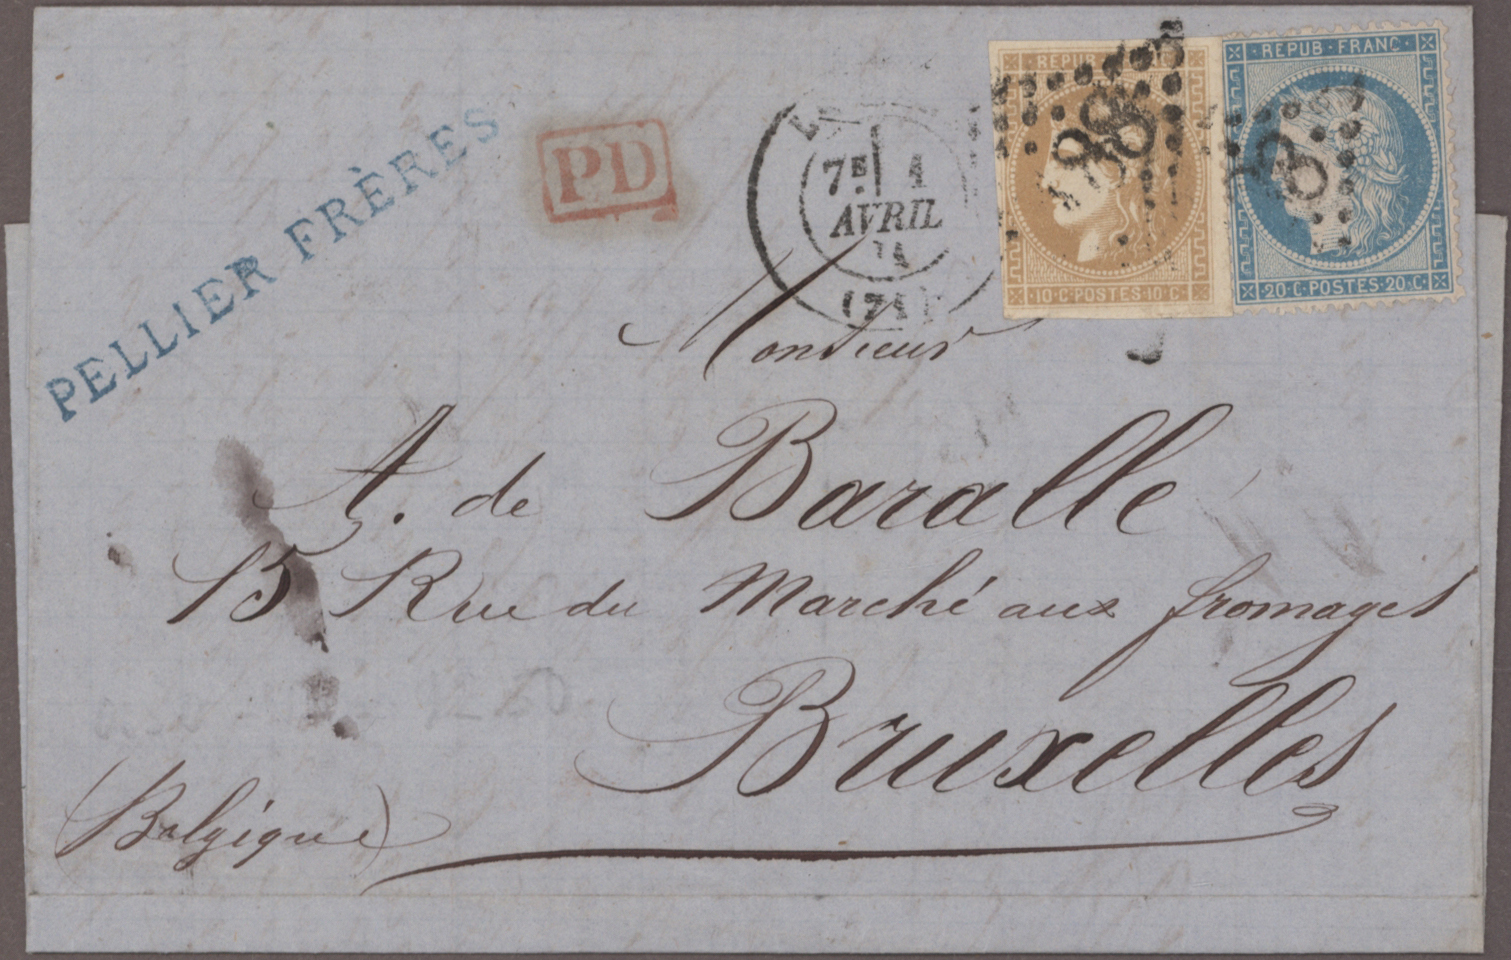 PELLIER FRÈRES
PD
7E 1
AVRIL
74
REPUB
10·C·POSTES·10·C
REPUB·FRANC
20·C·POSTES·20·C
Monsieur
A. de Baralle
15 Rue du Marché aux fromages
Bruxelles
(Belgique)